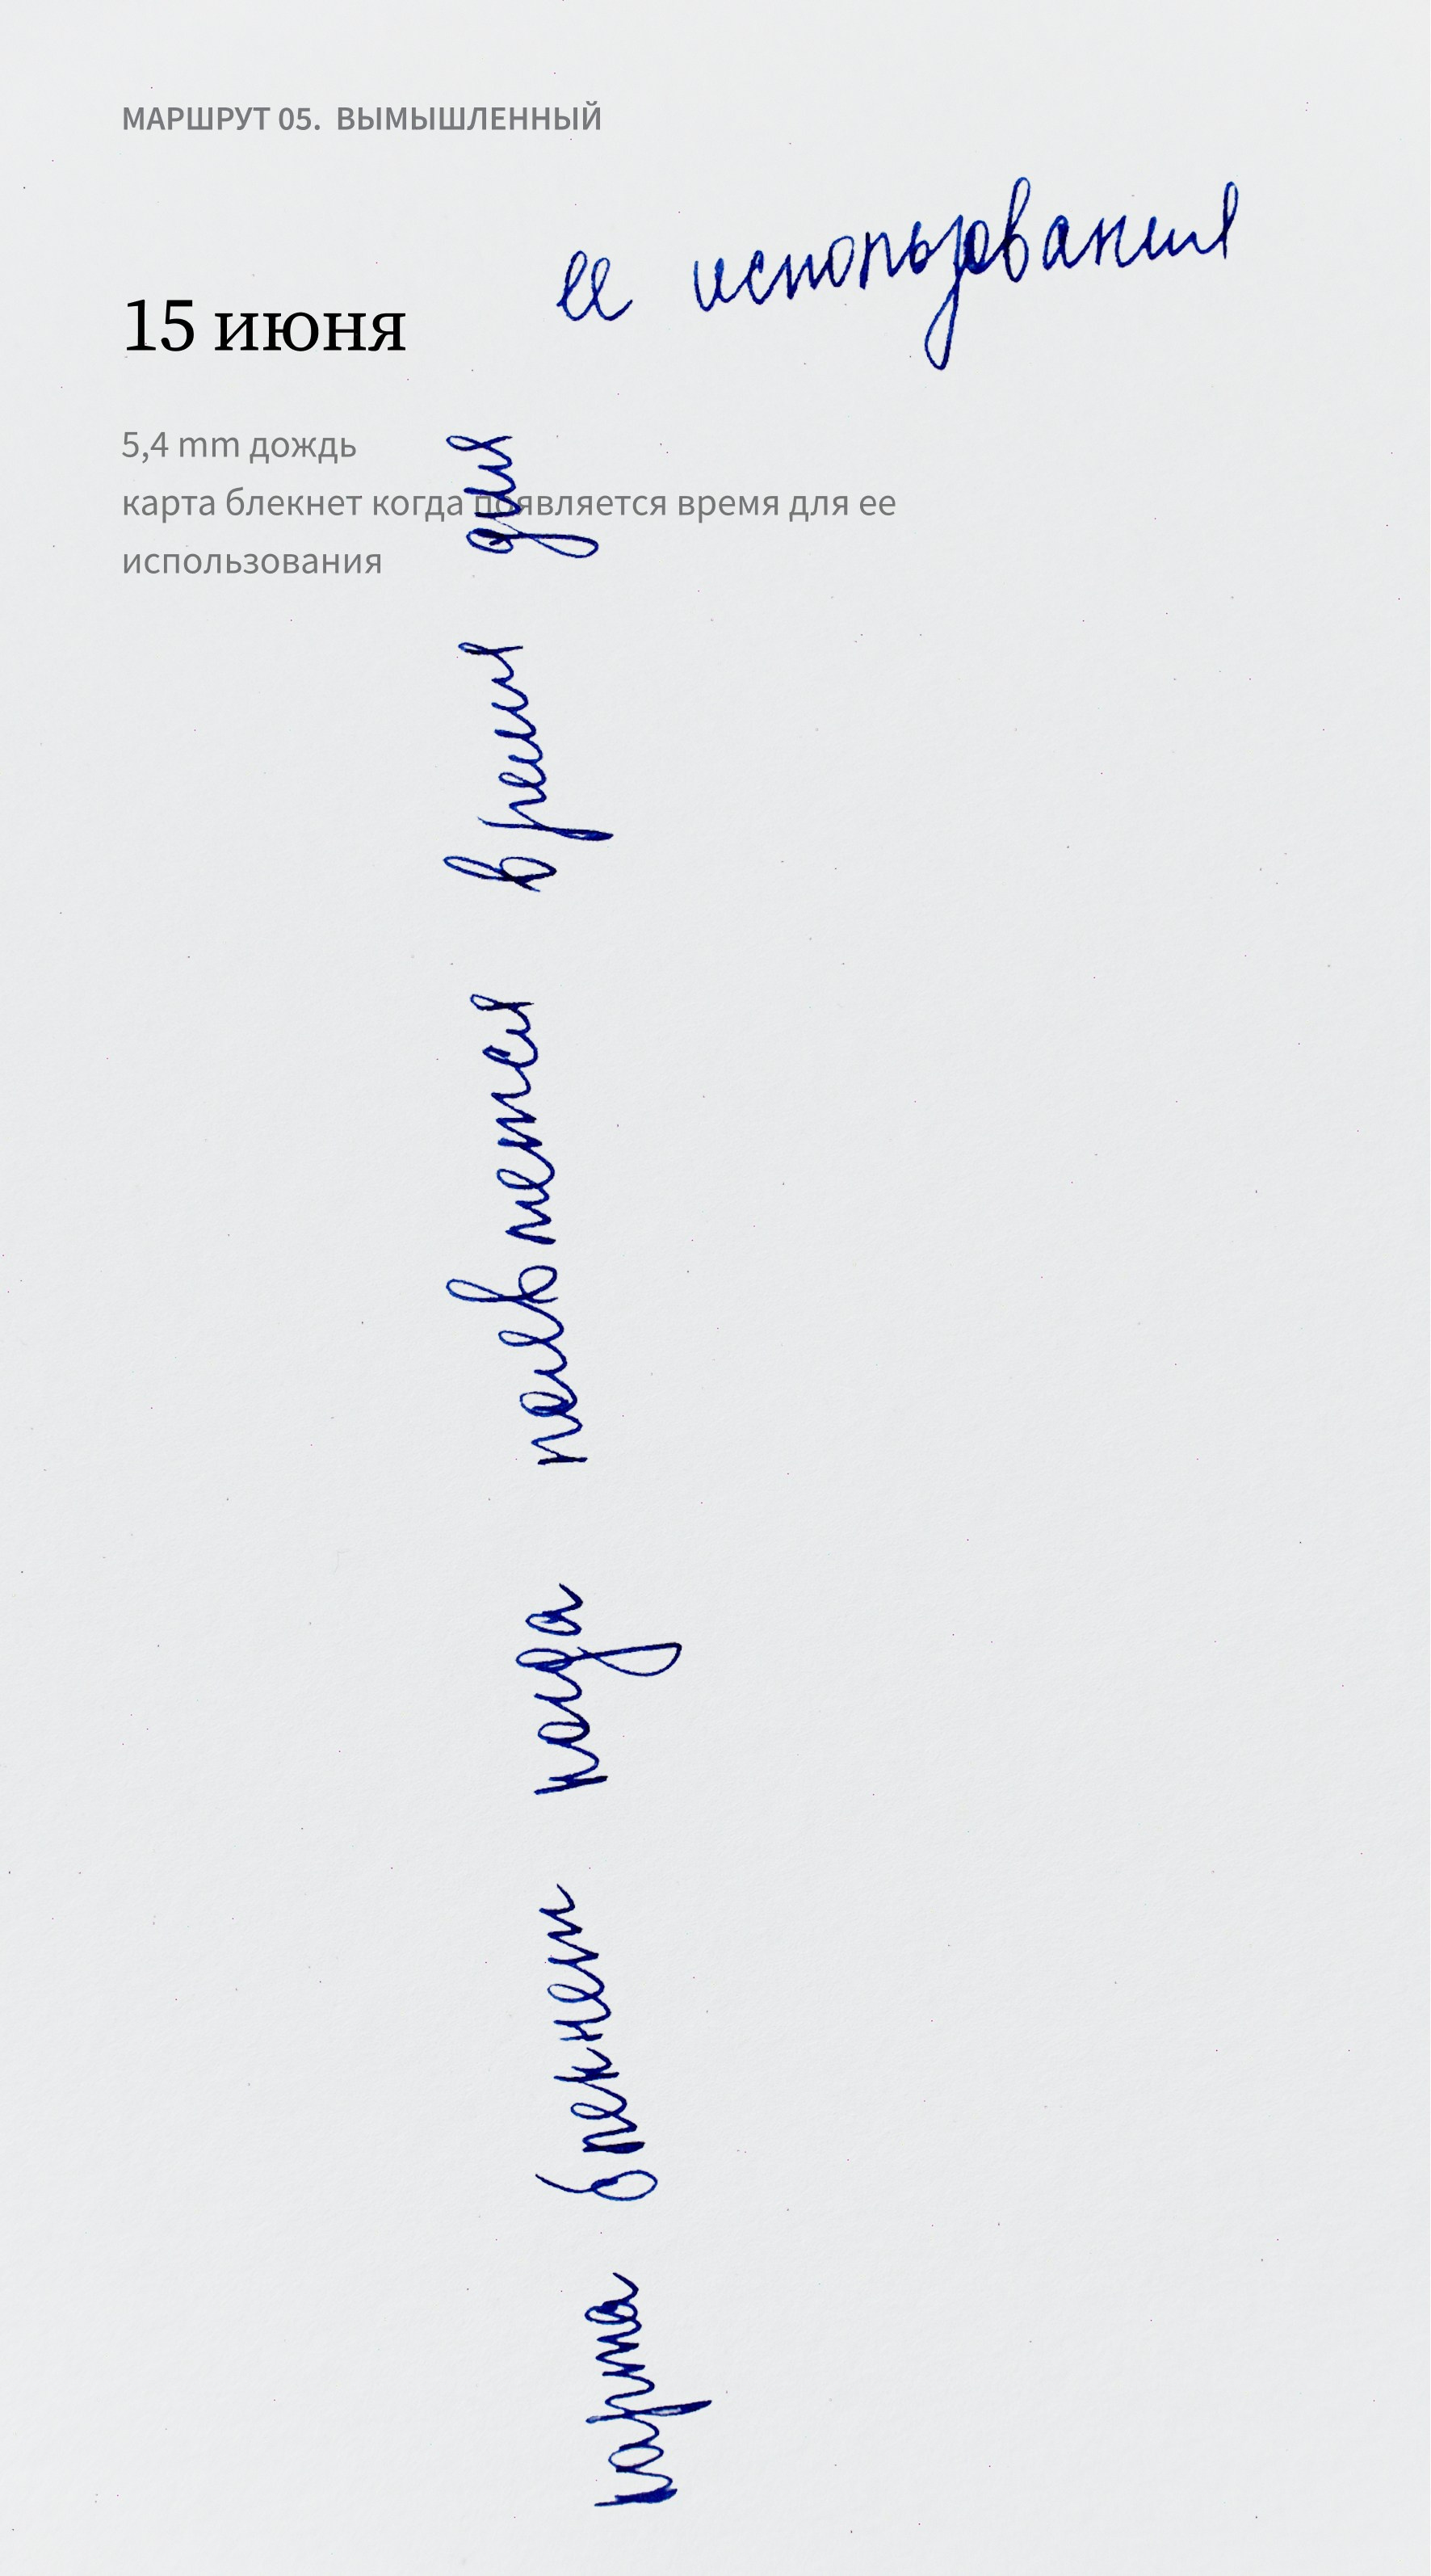 МАРШРУТ 05. ВЫМЫШЛЕННЫЙ
15 июня
5,4 mm дождь
карта блекнет когда появляется время для ее
использования
карта блекнет когда появляется время для
ее использования